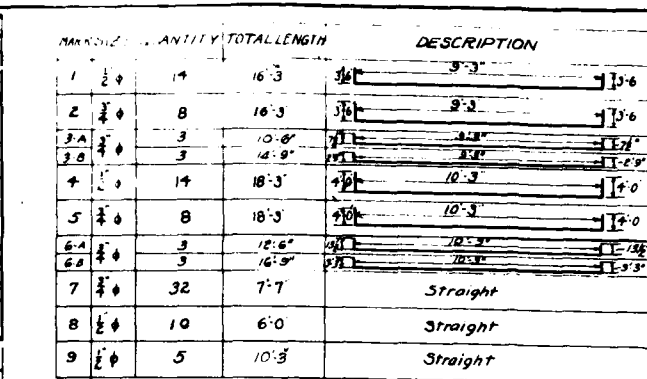 MARK SIZE QUANTITY TOTAL LENGTH DESCRIPTION
1 1/2" φ 14 16'-3" 3'6 9'-3" 3'-6
2 3/4" φ 8 16'-3 3'6 9'-3 3'-6
3-A 3/4" φ 3 10'-6" 7½"
3-B 3 14'-9" 2'-9"
4 1/2" φ 14 18'-3" 4'0 10'-3" 4'-0
5 3/4" φ 8 18'-3 4'0 10'-3 4'-0
6-A 3/4" φ 3 12'-6" 13½
6-B 3 16'-9" 3'3"
7 3/4" φ 32 7'-7" Straight
8 1/2" φ 10 6'-0 Straight
9 1/2" φ 5 10'-3" Straight